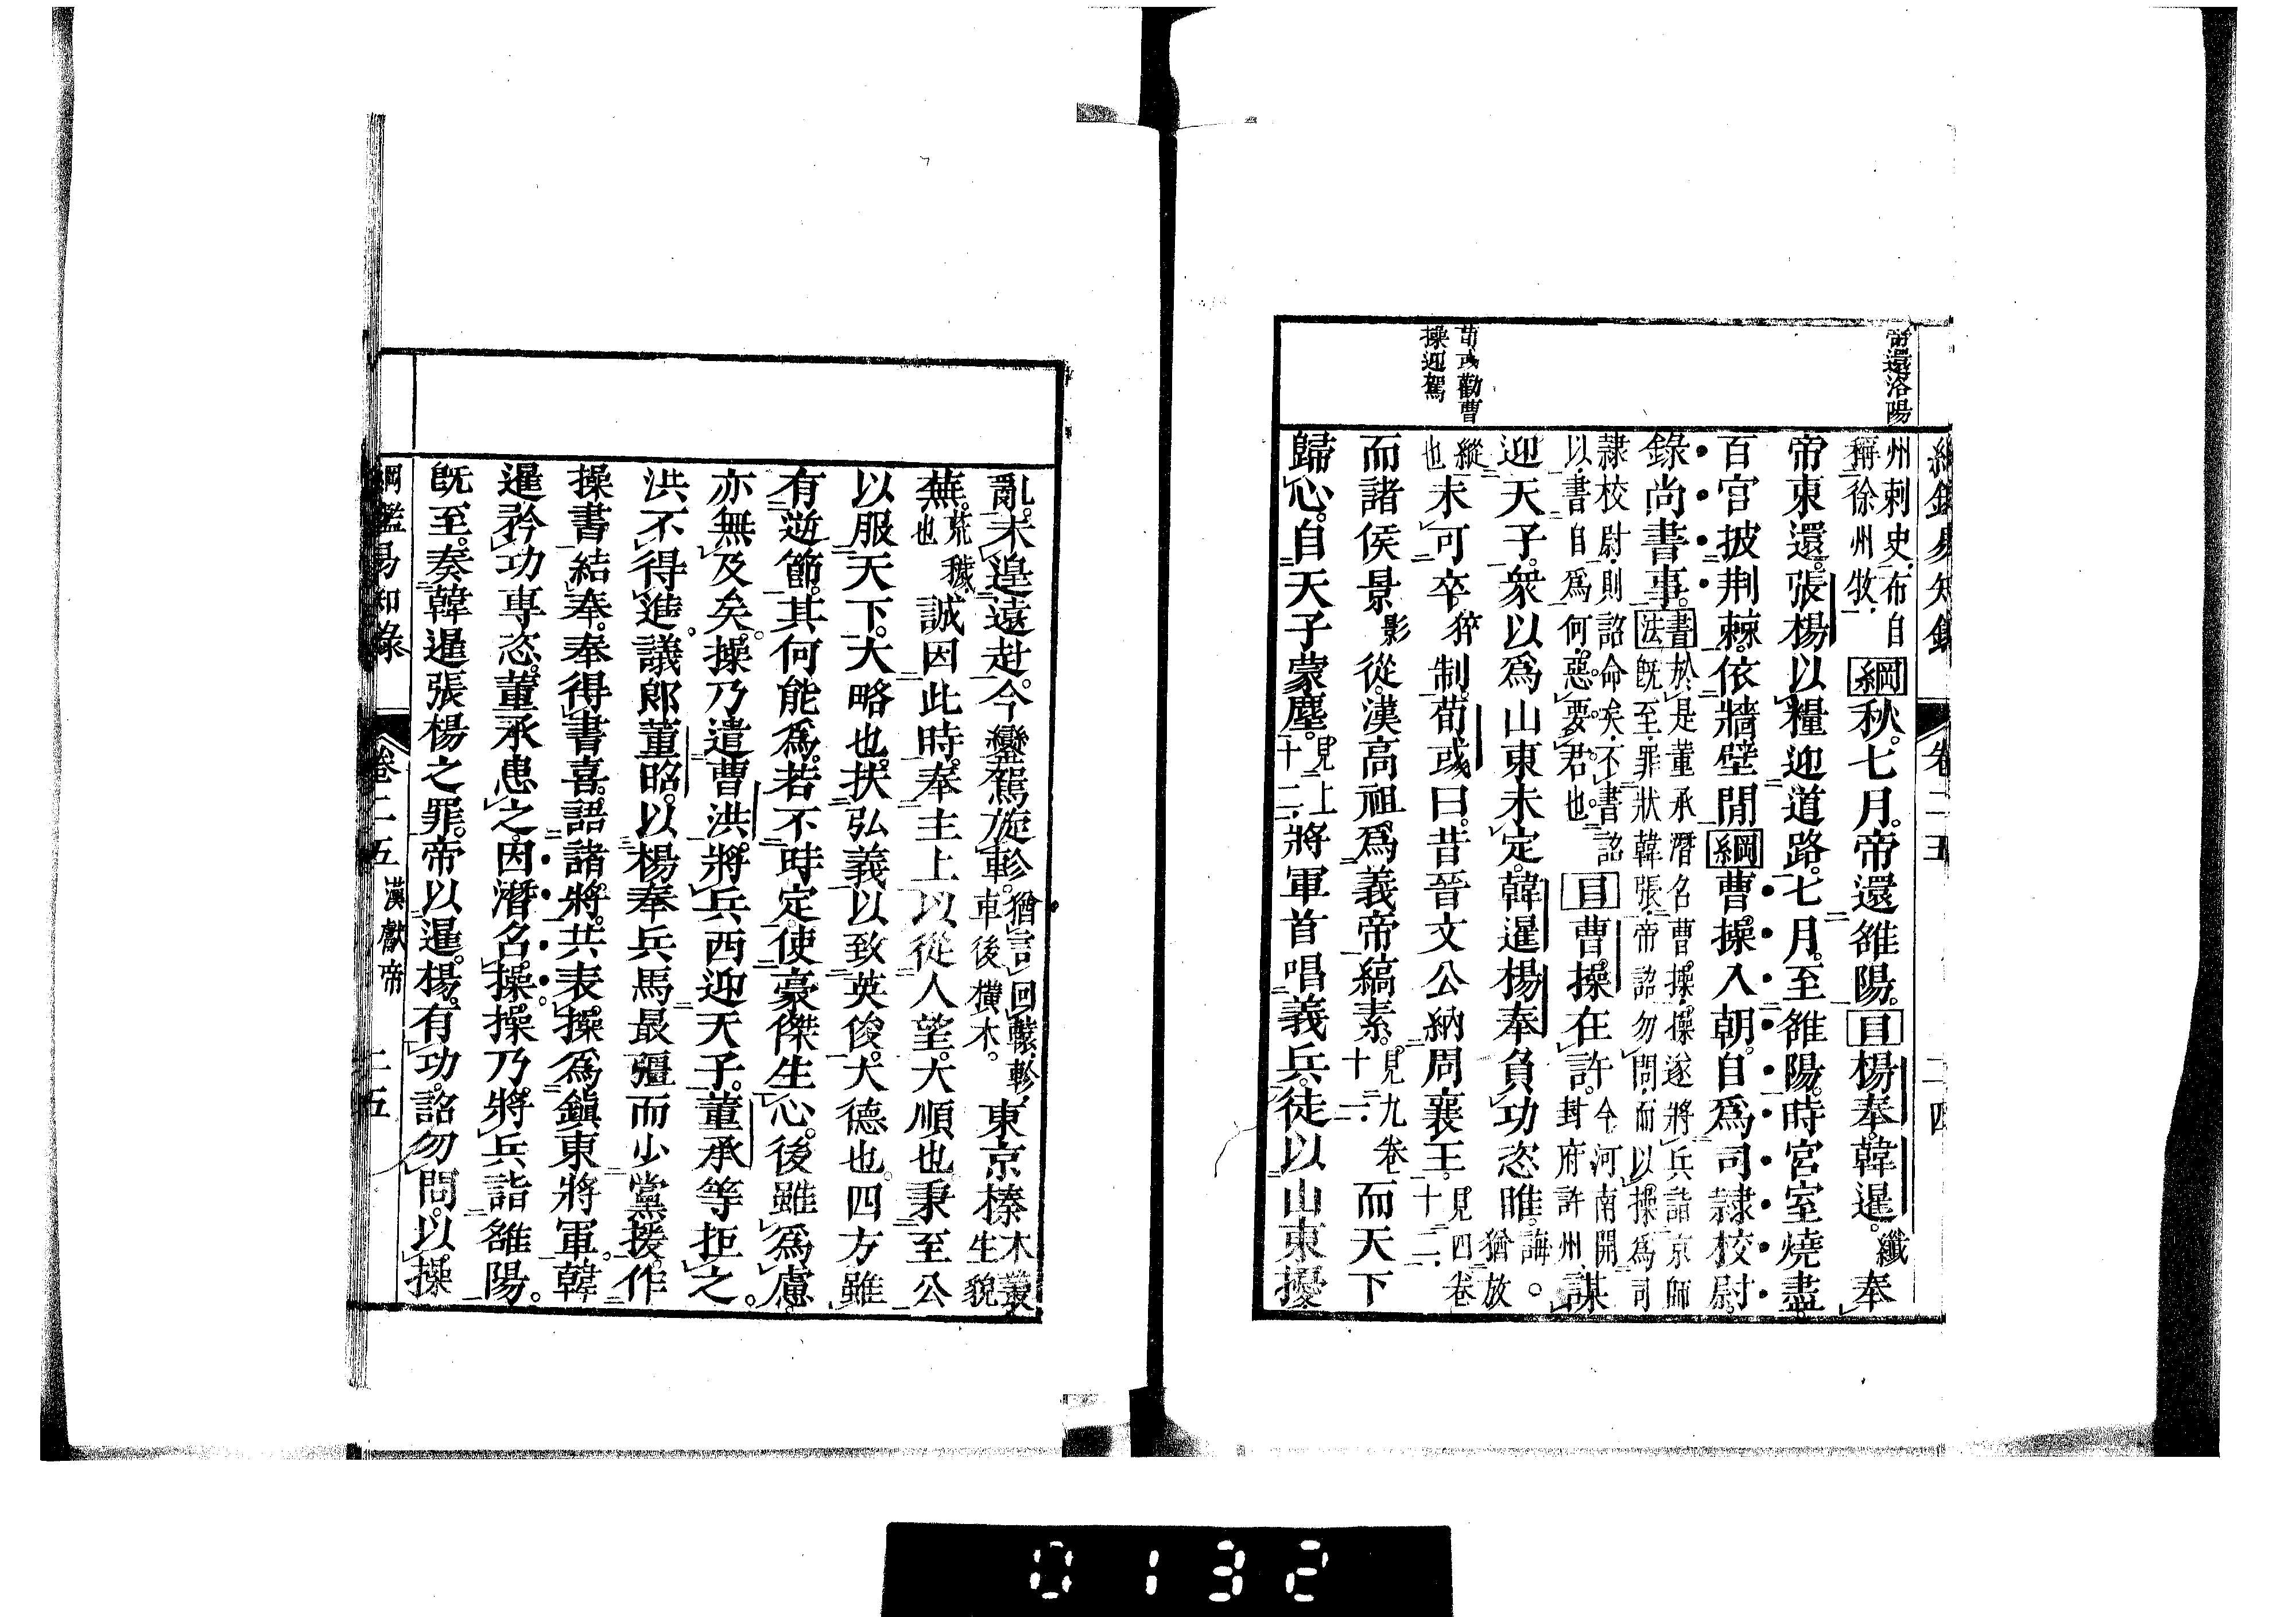 綱鑑易知錄　卷二五　二四
帝還洛陽
荀彧勸曹
操迎駕
州刺史布自
稱徐州牧綱秋七月帝還雒陽目楊奉韓暹纖奉
帝東還張楊以糧迎道路七月至雒陽時宮室燒盡
百官披荆棘依牆壁閒綱曹操入朝自爲司隸校尉
錄尚書事書法於是董承潛召曹操操遂將兵詣京師
既至罪狀韓張帝詔勿問而以操爲司
隸校尉則詔命矣不書詔
以書自爲何惡要君也目曹操在許今河南開
封府許州謀
迎天子衆以爲山東未定韓暹楊奉負功恣睢誨猶放
縱
也未可卒猝制荀彧曰昔晉文公納周襄王見四卷
十二
而諸侯景影從漢高祖爲義帝縞素見九卷
十一而天下
歸心自天子蒙塵見上
十二將軍首唱義兵徒以山東擾
亂未遑遠赴今鑾駕旋軫猶言回轅軫
車後橫木東京榛木叢
生貌
蕪荒穢
也誠因此時奉主上以從人望大順也秉至公
以服天下大略也扶弘義以致英俊大德也四方雖
有逆節其何能爲若不時定使豪傑生心後雖爲慮
亦無及矣操乃遣曹洪將兵西迎天子董承等拒之
洪不得進議郎董昭以楊奉兵馬最彊而少黨援作
操書結奉奉得書喜語諸將共表操爲鎭東將軍韓
暹矜功專恣董承患之因潛召操操乃將兵詣雒陽
既至奏韓暹張楊之罪帝以暹楊有功詔勿問以操
綱鑑易知錄　卷二五　漢獻帝　二五
0132